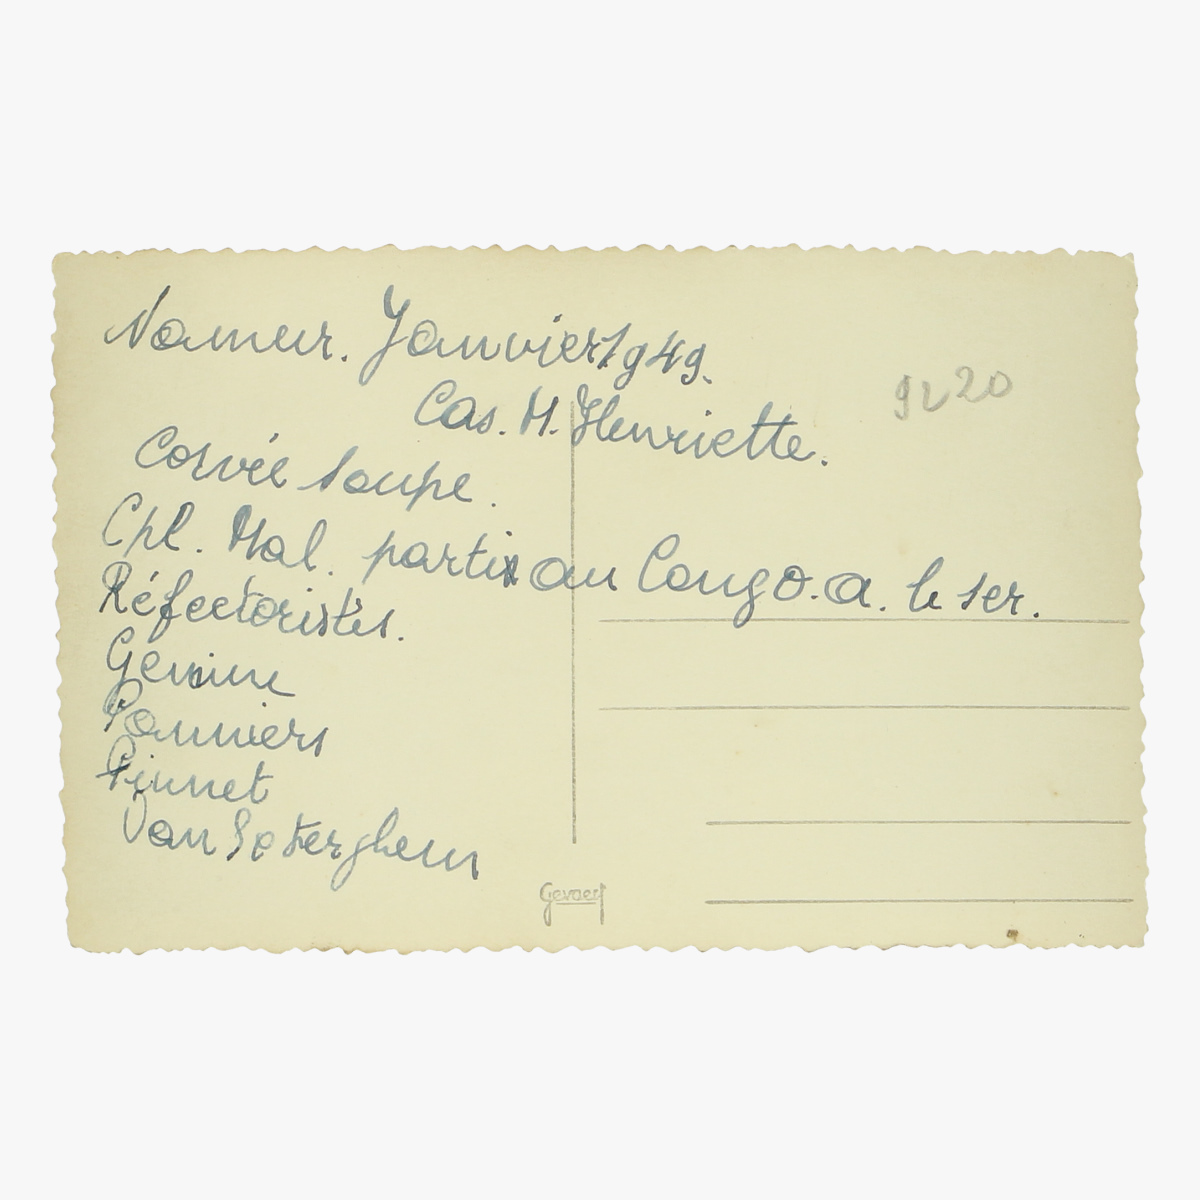 Namur. Janvier 1949.
Cas. M. Henriette.
Corvée soupe.
Cpl. Mal. parti au Congo. a. le 1er.
Réfectoristes.
Gemine
Panniers
Pinnet
Van
9220
Gevaert